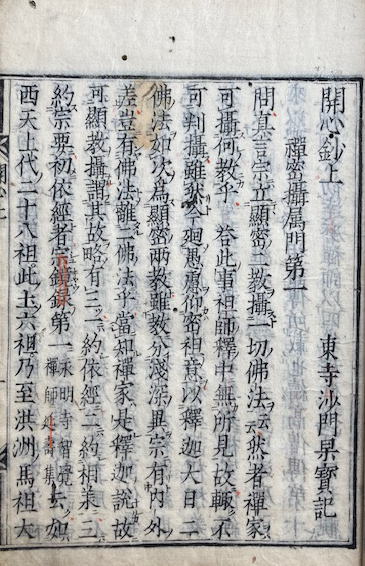 開心鈔上　東寺沙門杲寶記
禪密攝属門第一
問真言宗立顯密二教攝一切佛法云云然者禪家
可攝何教乎　答此事祖師釋中無所見故輙不
可判攝雖然今廻愚慮仰密祖意以釋迦大日二
佛法如次為顯密兩教雖教分淺深異宗有内外
差豈有佛法離二佛法乎當知禪家是釋迦說故
可顯教攝謂其故略有三一約依經二約相業三
約宗要初依經者宗鏡錄第一永明寺智覺禪師延壽集云如
西天上代二十八祖此土六祖乃至洪洲馬祖大